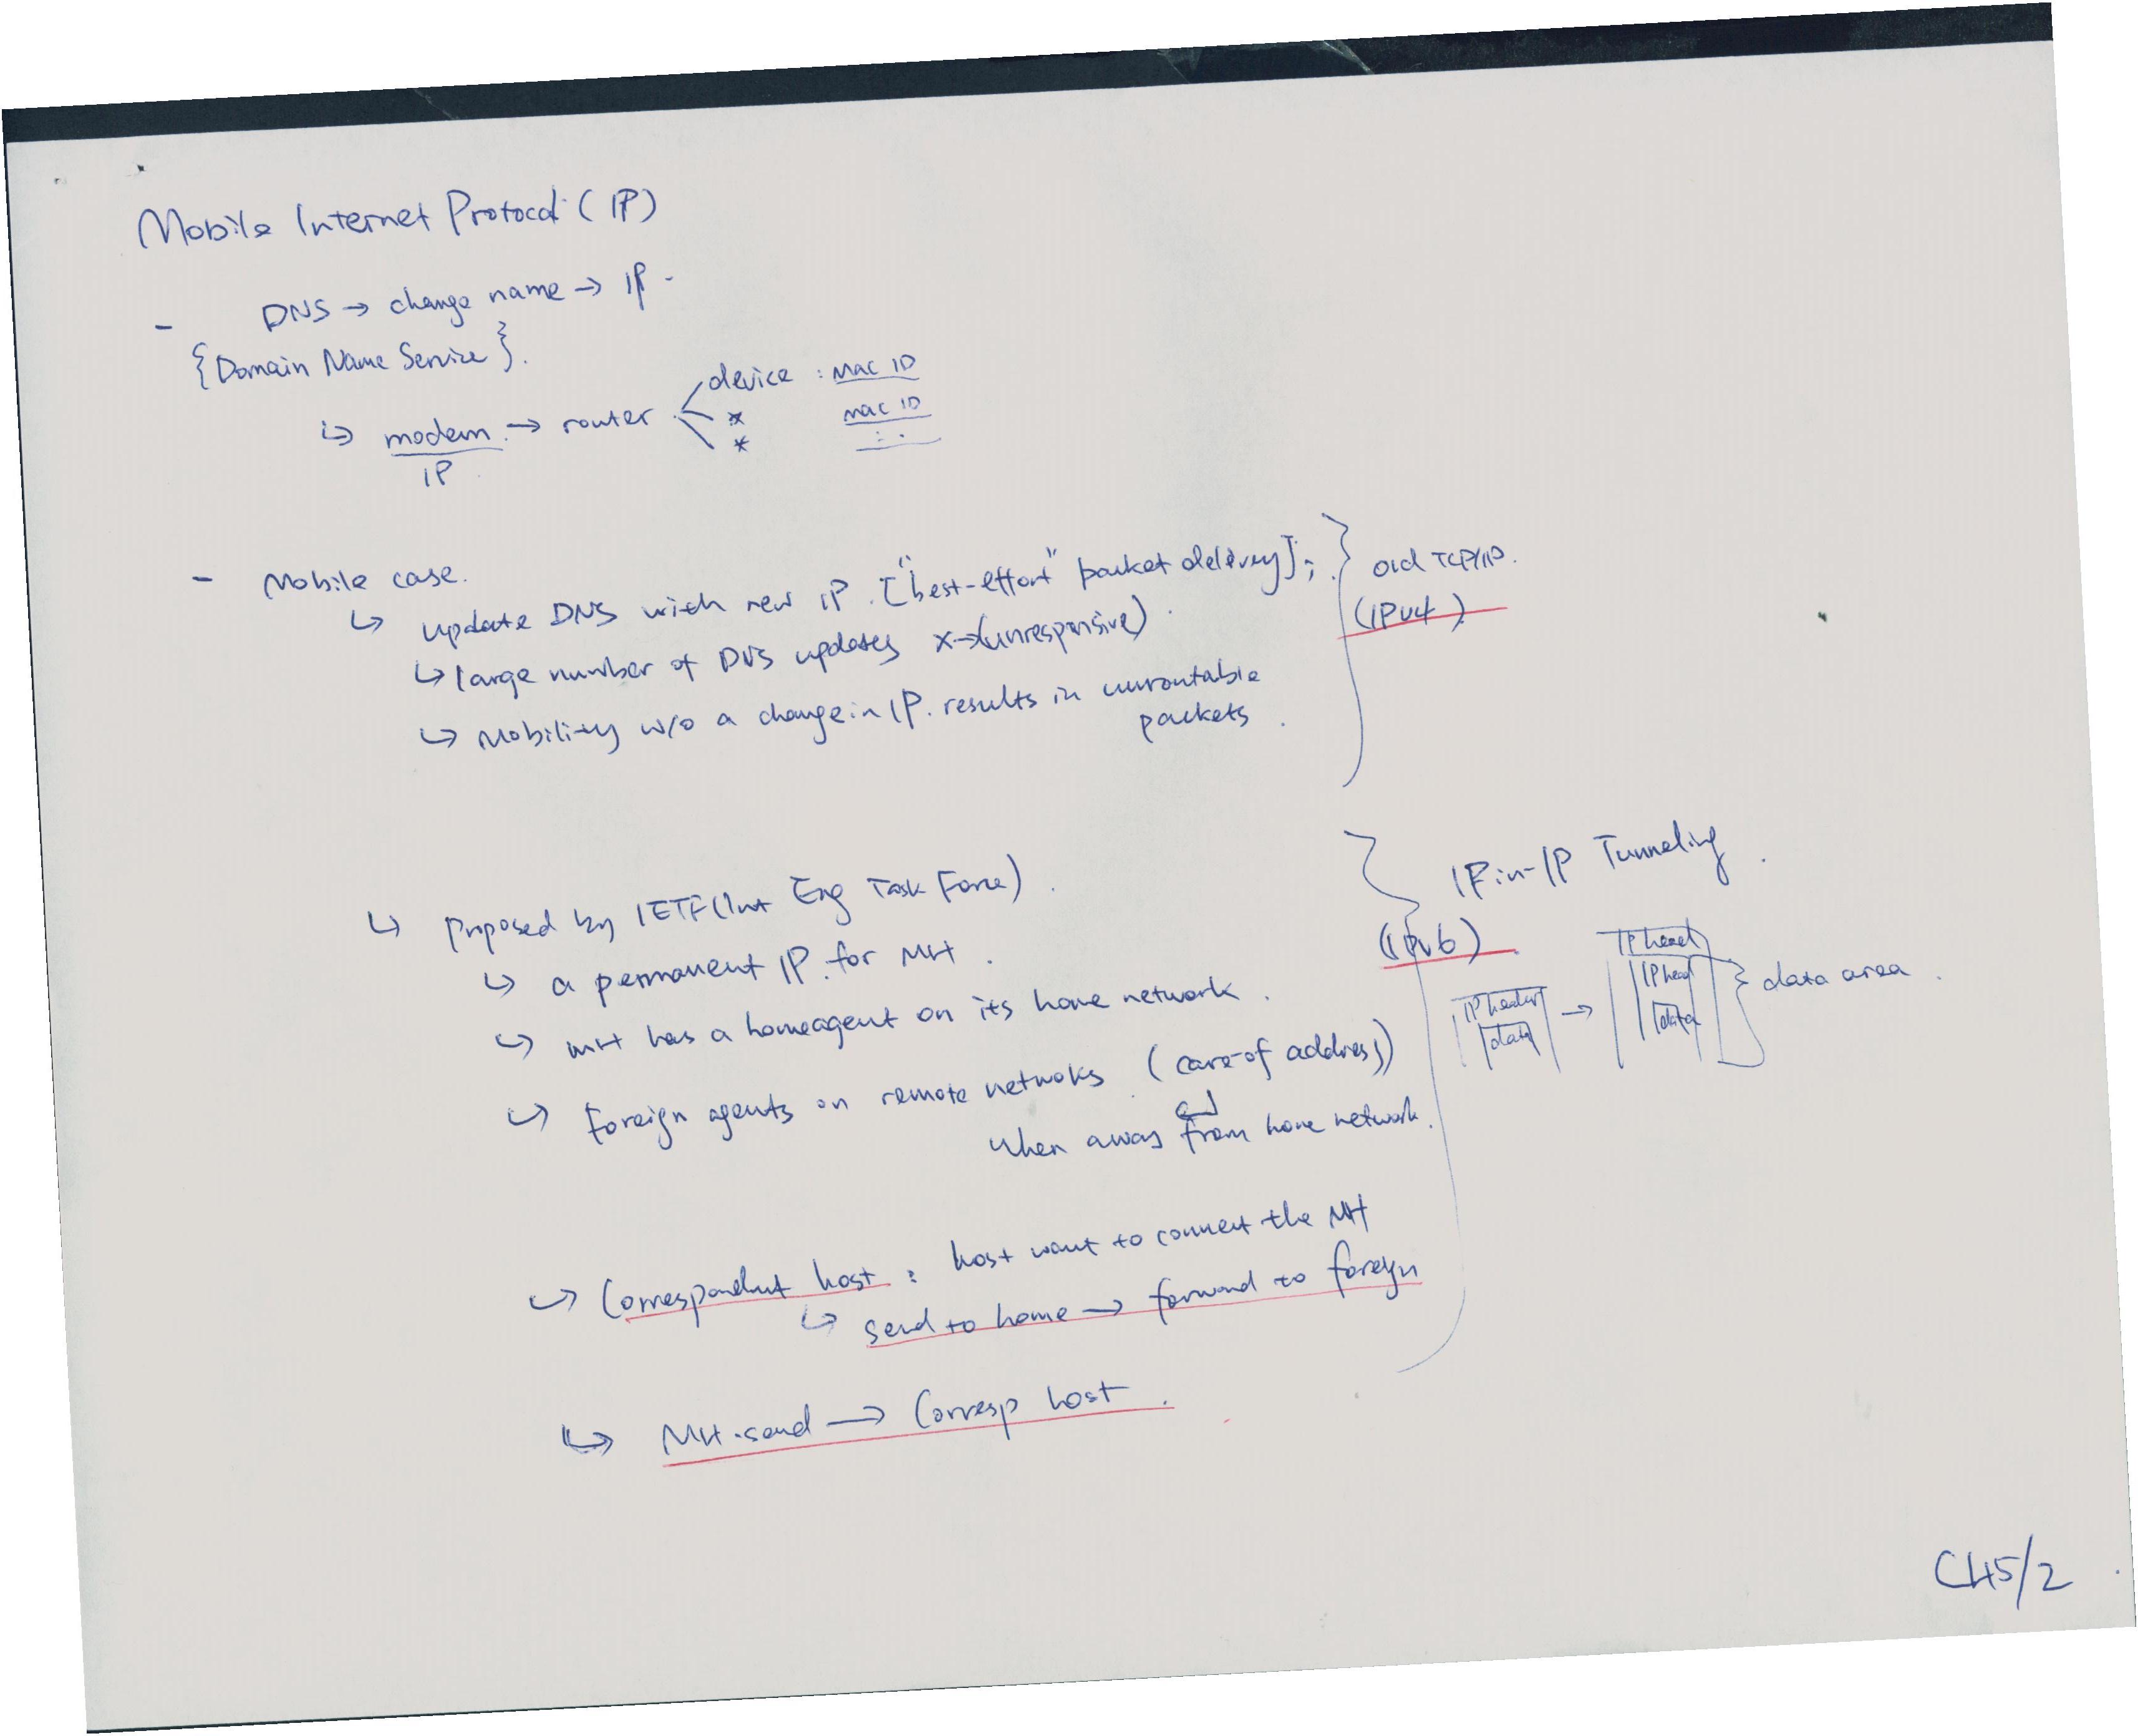 Mobile Internet Protocol (IP)
- DNS → change name → IP.
{Domain Name Service}.
↳ modem → router < device : MAC ID
* MAC ID
*
IP
- Mobile case.
↳ update DNS with new IP. ["best-effort" packet delivery];
↳ large number of DNS updates x→(unresponsive).
↳ Mobility w/o a change in IP. results in unroutable
packets.
old TCP/IP.
(IPv4)
↳ proposed by IETF (Int Eng Task Force).
↳ a permanent IP for MH.
↳ MH has a homeagent on its home network.
↳ Foreign agents on remote netwoks (care-of address)
When away from home network.
↳ Correspondent host : host want to connect the MH
↳ send to home → forward to foreign
↳ MH send → Corresp host.
IP in-IP Tunneling.
(IPv6)
IP header
data
→
IP head
IP head
data
} data area.
CH5/2